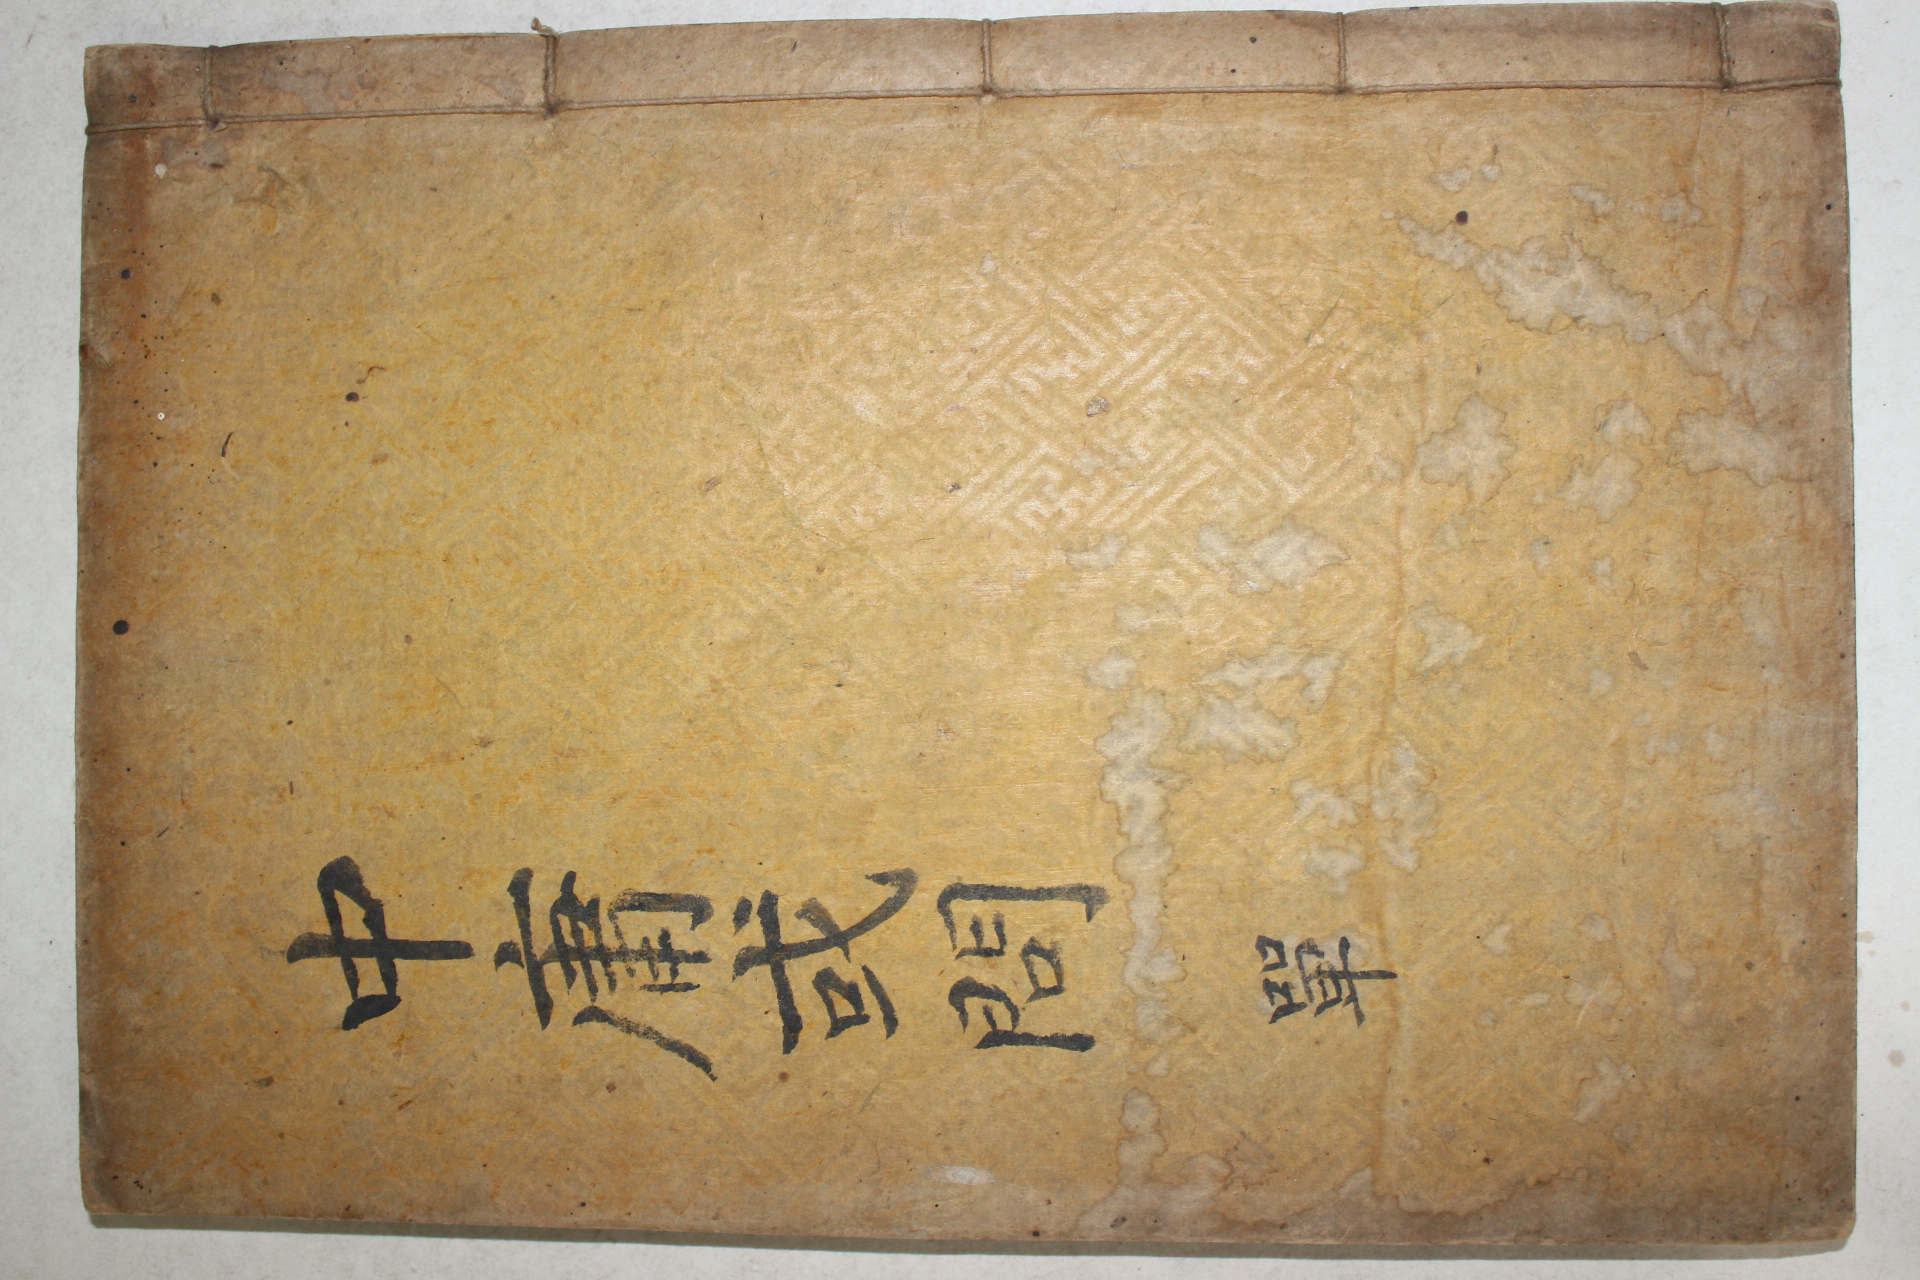 中庸或問 單